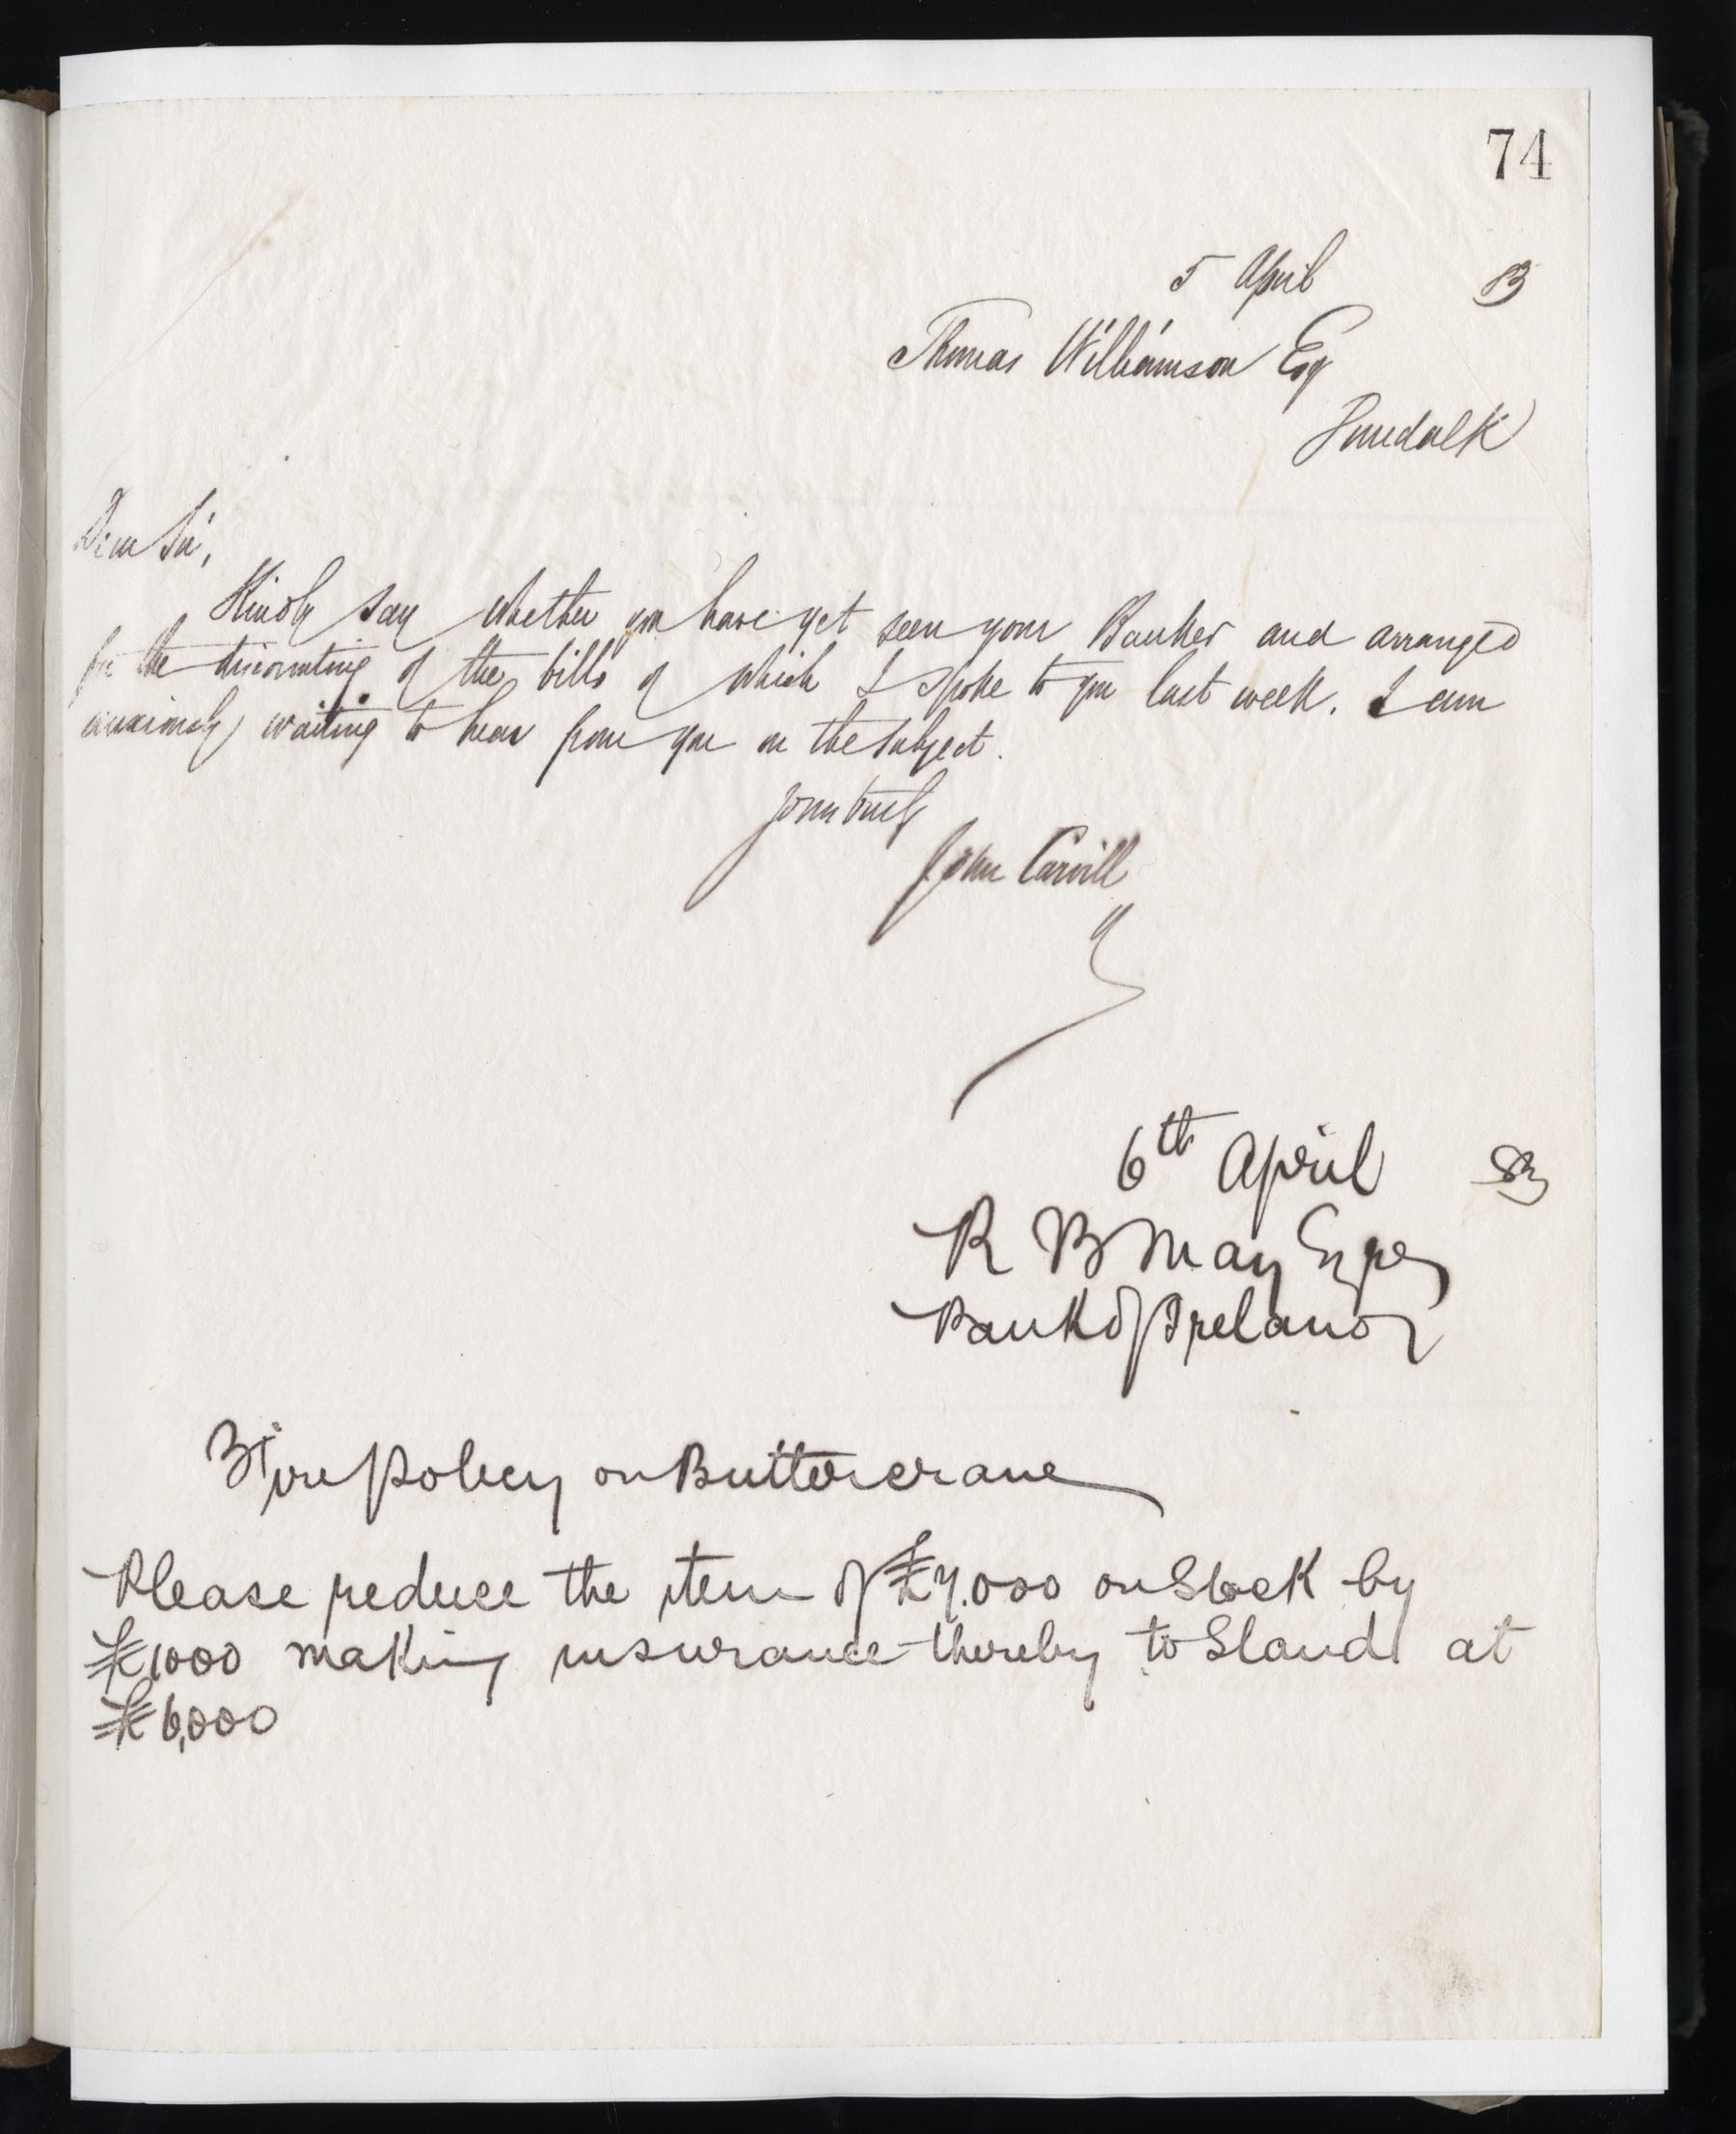 74
5 April 83
Thomas Williamson Esq
Dundalk
Dear Sir,
Kindly say whether you have yet seen your Banker and arranged
for the discounting of the bills of which I spoke to you last week. I am
anxiously waiting to hear from you on the subject.
Yours truly
John Carvill
6th April 83
R B May Esqre
Bank of Ireland
Fire Policy on Buttercrane
Please reduce the item of £7.000 on Stock by
£1000 making insurance thereby to Stand at
£6,000